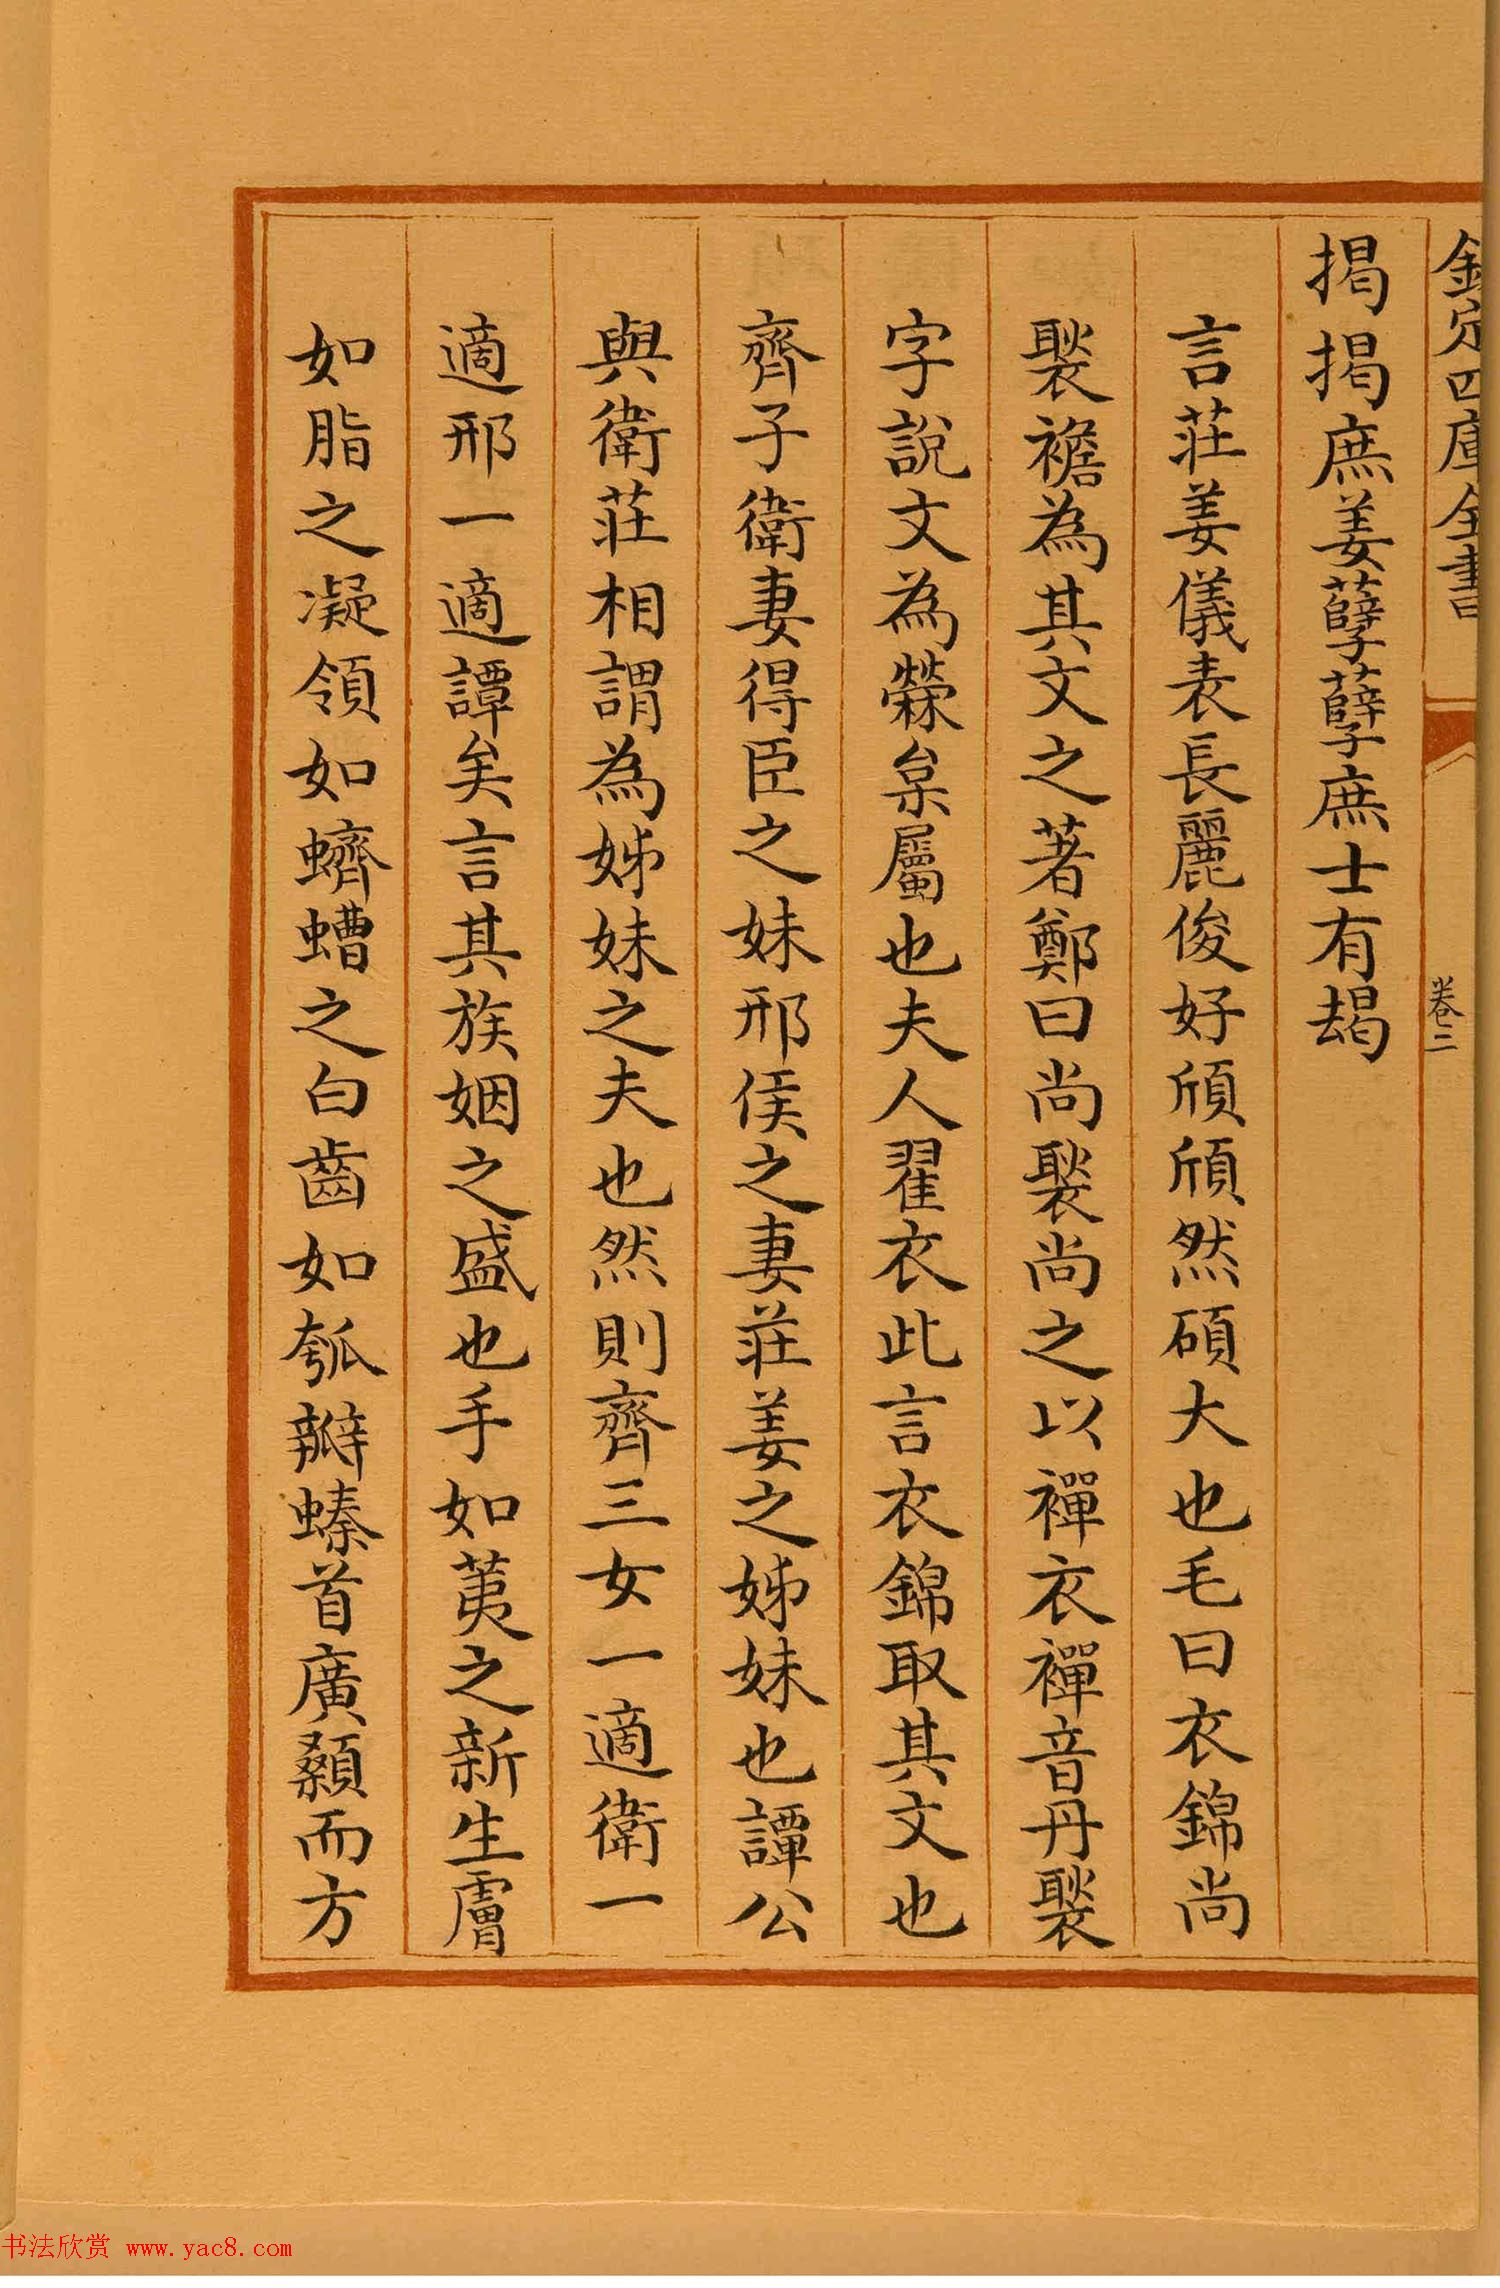 欽定四庫全書
卷三
揭揭庶姜孽孽庶士有朅
言莊姜儀表長麗俊好頎頎然碩大也毛曰衣錦尚
褧襜為其文之著鄭曰尚褧尚之以襌衣襌音丹褧
字說文為檾枲屬也夫人翟衣此言衣錦取其文也
齊子衛妻得臣之妹邢侯之妻莊姜之姊妹也譚公
與衛莊相謂為姊妹之夫也然則齊三女一適衛一
適邢一適譚矣言其族姻之盛也手如荑之新生膚
如脂之凝領如蠐螬之白齒如瓠瓣螓首廣顙而方
书法欣赏 www.yac8.com